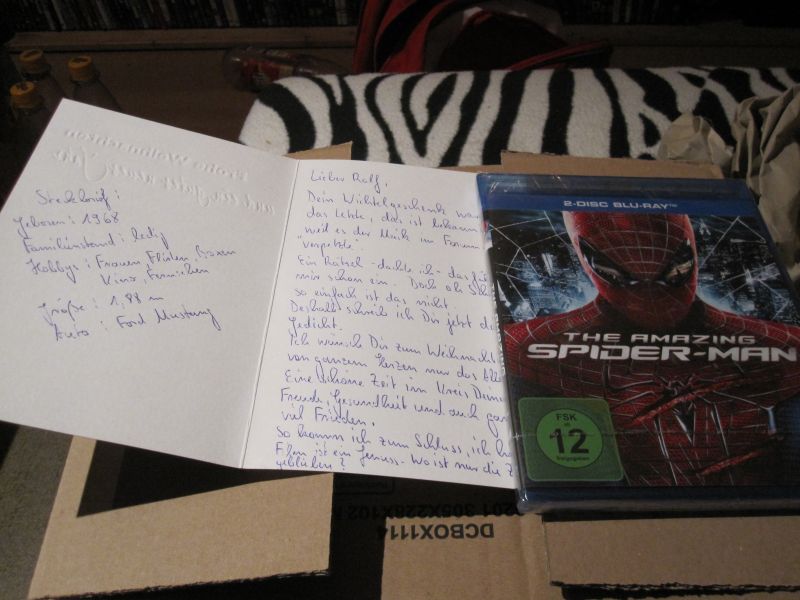 Frohe Weihnachten
und ein gutes neues Jahr
Steckbrief:
Geboren: 1968
Familienstand: ledig
Hobbys: Frauen Flirten, Boxen
Kino, Fernsehen
Größe: 1,88 m
Auto: Ford Mustang
Lieber Rolf,
Dein Wichtelgeschenk war
das Letzte, das ist bekann
weil es der Maik im Forum
"verpetzte".
Ein Rätsel - dachte ich - das
mir schon ein. Doch als
so einfach ist das nicht.
Deshalb schreib ich Dir jetzt
Gedicht.
Ich wünsch Dir zum Weihnacht
von ganzem Herzen nur das All
Eine schöne Zeit im Kreis Deine
Freude, Gesundheit und auch gan
viel Frieden.
So komm ich zum Schluss, ich
Film ist ein Genuss - Wo ist nur die Z
geblieben?
2-DISC BLU-RAY™
THE AMAZING
SPIDER-MAN
FSK
ab
12
freigegeben
0201 305X228X102
DCBOX1114